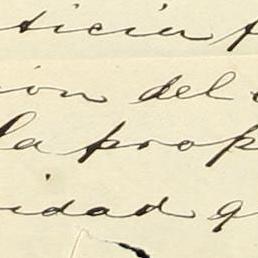 ticia f
ion del
la prop
idad q